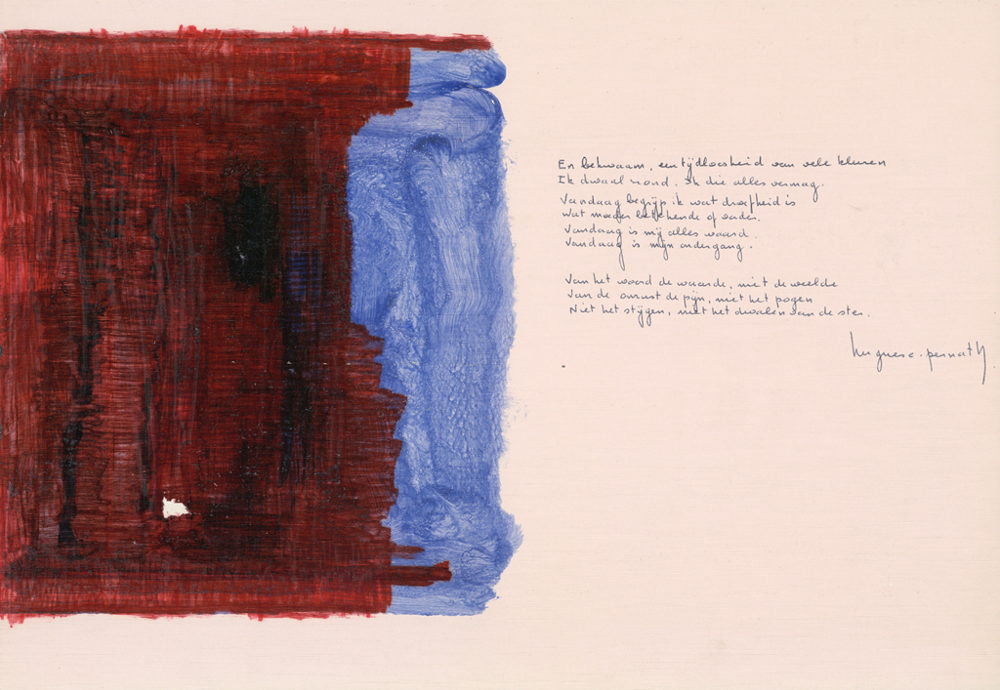 En bekwaam, een tijdloosheid van vele kleuren
Ik dwaal rond. Ik die alles vermag.
Vandaag begrijp ik wat droefheid is
Wat moeder betekende of vader.
Vandaag is mij alles waard.
Vandaag is mijn ondergang.
Van het woord de waarde, niet de weelde
Van de onrust de pijn, niet het pogen
Niet het stijgen, niet het dwalen van de ster.
hugues c. pernath